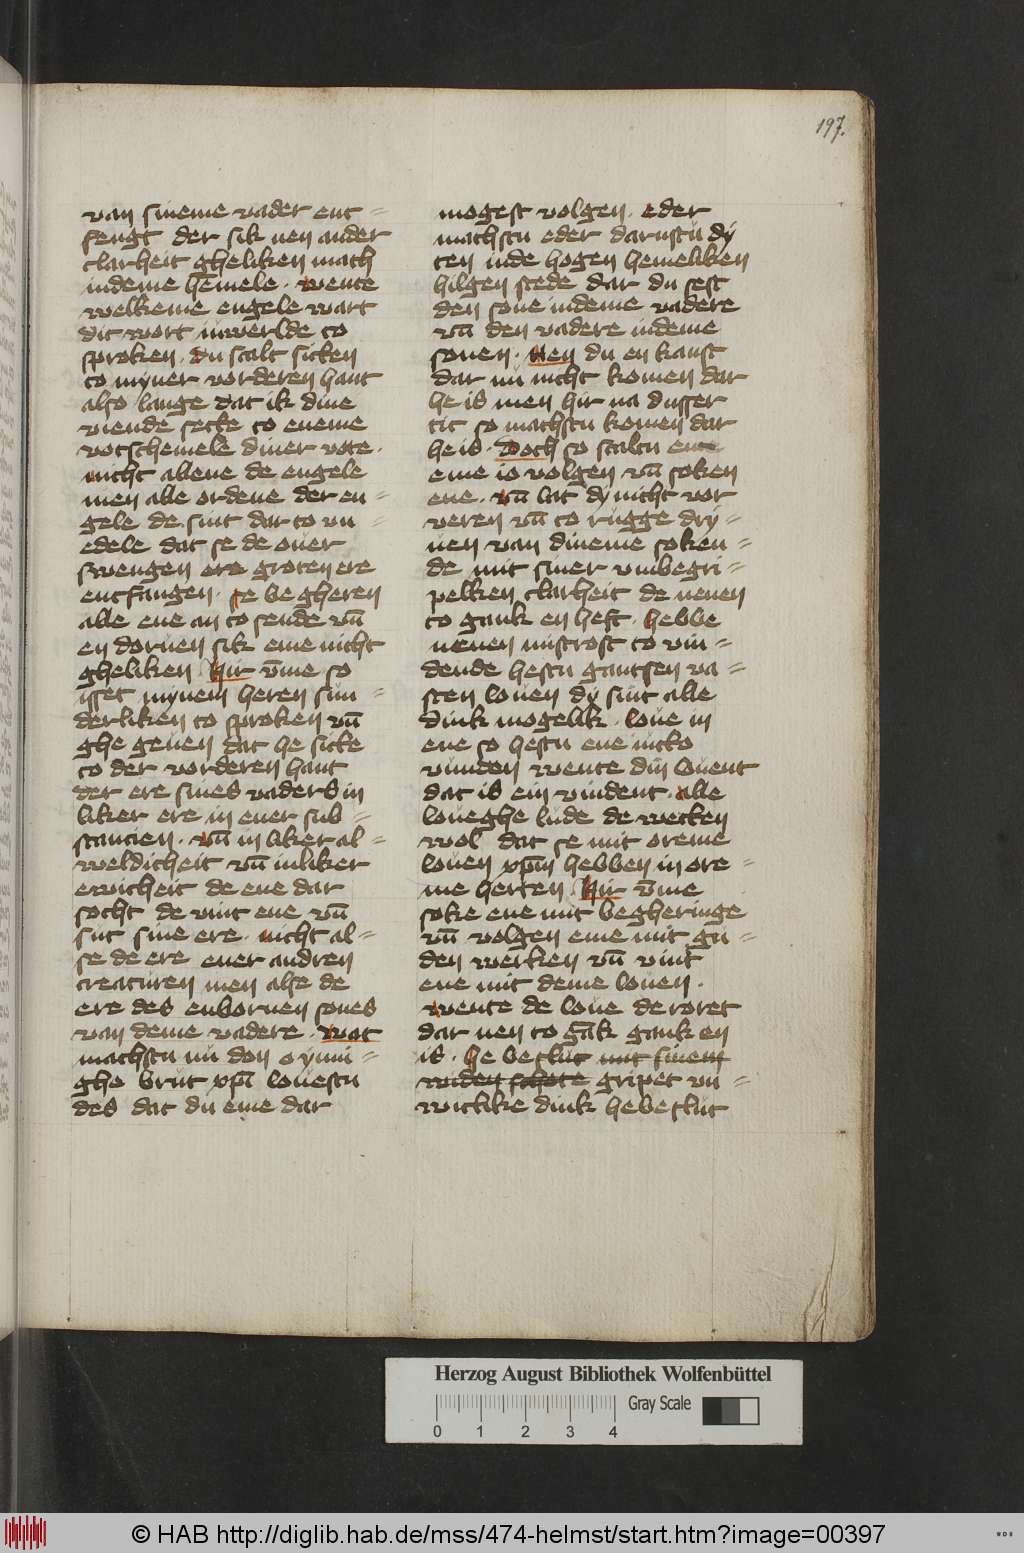 197.
van sineme vader ent=
fengt der sik nen ander
clarheit gheliken mach
indeme hēmele · wente
welkeme engele wart
dit wort inwerlde to
sproken · du scalt sitten
to myner vorderen hant
also lange dat ik dine
viende sette to eneme
votschemele diner vote ·
nicht allene de engele
men alle ordene der en=
gele de sint dar to un=
edele dat se de over
swengen ere groten ere
entfangen · se begheren
alle ene an to sende vn̄
en dorven sik eme nicht
gheliken Hir v̄me so
isset mynem heren sun=
derliken to sproken vn̄
ghe geven dat he sitte
to der vorderen hant
der ere sines vaders in
liker ere in ener sub=
stancien · vn̄ in liker al=
weldicheit vn̄ inliker
ewicheit de ene dar
socht de vint ene vn̄
sut sine ere · nicht al=
se de ere ener andren
creaturen men alse de
ere des enbornen sones
van deme vadere · Wat
machstu nu don o ynni=
ghe brut xp̄i lovestu
des dat du eme dar
mogest volgen · eder
machstu eder darustu dy
ten inde hogen hemeliken
hilgen stede dar du sest
den sone indeme vadere
vn̄ den vadere indeme
sonen · Nen du en kanst
dar nu nicht komen dar
he is men hir na dusser
tit so machstu komen dar
he is · Doch so scaltu
eme io volgen vn̄ soken
ene · vn̄ lat dy nicht vor
veren vn̄ to rugge dry=
uen van dineme soken=
de mit siner vmbegri=
pelken clarheit de nenen
to gank en heft · hebbe
nenen mistrost to vin=
dende hestu gantsen va=
sten loven dy sint alle
dink mogelik · love in
ene so hestu ene nicto
vunden wente din lovent
dat is ein vindent · alle
loveghe lude de wetten
wol dat se mit oreme
loven xp̄m hebben in ore=
me herten Hir v̄me
soke ene mit begheringe
vn̄ volgen eme mit gu=
den werken vn̄ vint
ene mit deme loven ·
wente de love de roret
dar nen to gāk gank en
is · he beslut mit sinem
widen schote gripet vn=
witlike dink he beslut
Herzog August Bibliothek Wolfenbüttel
0 1 2 3 4
Gray Scale
© HAB http://diglib.hab.de/mss/474-helmst/start.htm?image=00397